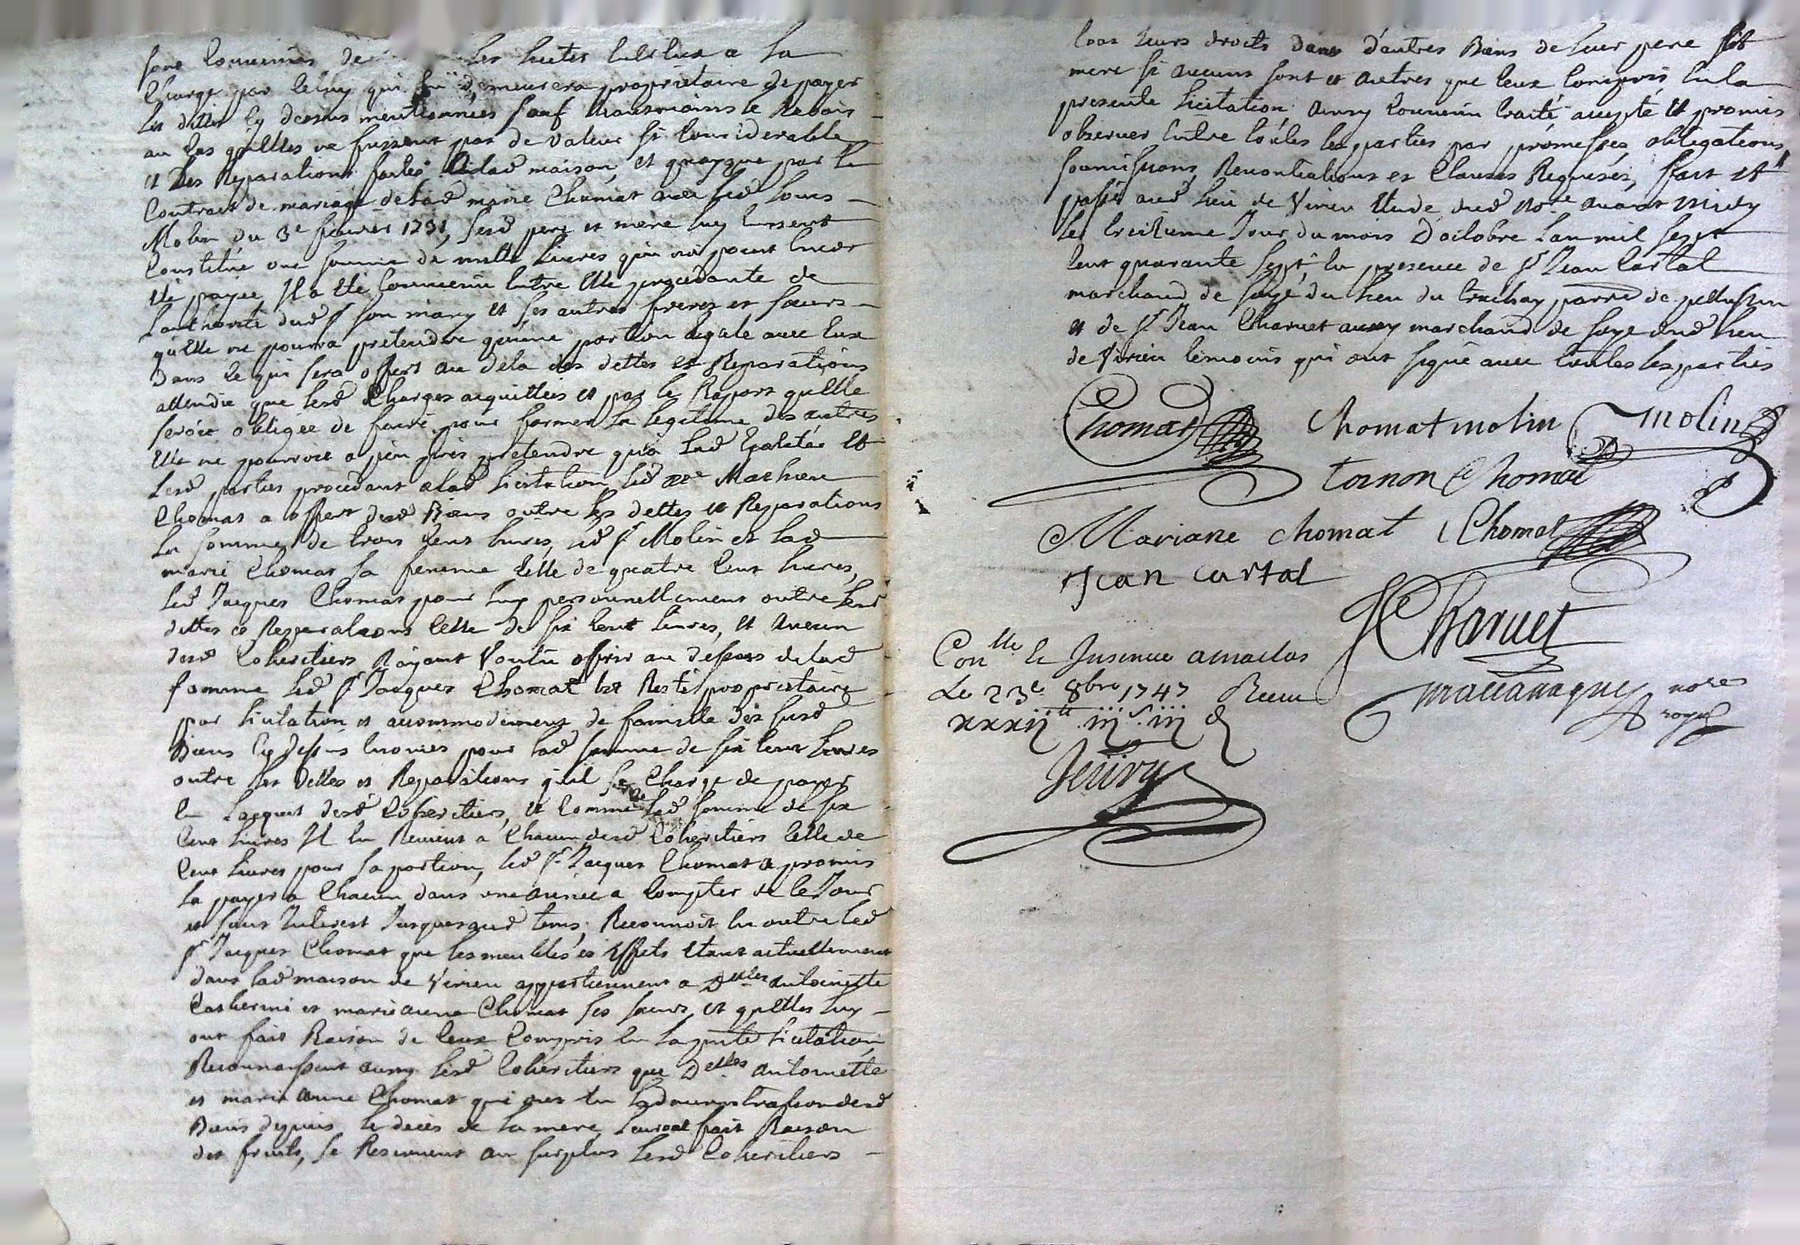 sont convenues de les liciter entre eux a la
charge par celuy qui en demeurera proprietaire de payer
les dettes cy dessus mentionnées sauf neanmoins le Rabais
au cas qu'elles ne fussent pas de valeur si considerable
et des Reparations faites a lad maison, et quoyque par le
Contrat de mariage de lad marie Chomat avec led Louis
Molin du 3e fevrier 1731, sesd pere et mere luy eussent
Constitué une somme de mille Livres qui n'a point encor
été payée, Il a été convenu entre elle procedante de
l'authorité dud sr son mary et ses autres freres et sœurs
qu'elle ne pourra pretendre qu'une portion egale avec eux
dans ce qui sera offert au dela des dettes et Reparations
attendu que lesd Charges acquittées et par le Raport qu'elle
seroit obligée de faire pour former la legitime des autres
elle ne pourroit a peu près pretendre qu'a lad Egalité et
lesd parties procedant a lad licitation, led Mathieu
Chomat a offert desd Biens outre les dettes et Reparations
la somme de trois Cent livres, led sr Molin et lad
marie Chomat sa femme celle de quatre Cent livres,
led Jacques Chomat pour luy personnellement outre lesd
dettes et Reparations celle de six Cent livres, et aucun
desd Coheritiers N'ayant voulu offrir au dessus de lad
somme led sr Jacques Chomat est Resté proprietaire
par licitation et accommodement de famille des susd
Biens cy dessus enoncés pour lad somme de six Cent livres
outre les dettes et Reparations qu'il se Charge de payer
en l'acquit desd Coheritiers, et Comme de lad somme de six
Cent livres Il en Revient a Chacun desd Coheritiers celle de
Cent livres pour sa portion, led sr Jacques Chomat a promis
la payer a Chacun dans une année a Compter de ce Jour
et sans Interest Jusques aud tems; Reconnoit en outre led
sr Jacques Chomat que les meubles et effets etant actuellement
dans lad maison de Virieu appartiennent a Delles antoinette
Catherine et marie anne Chomat ses sœurs, et qu'elles luy
ont fait Raison de ceux Compris en la pnte licitation
Reconnoissent aussy lesd Coheritiers que Delles antoinette
et marie anne Chomat qui ont eu l'administration desd
Biens depuis le deces de la mere, leur ont fait Raison
des fruits, se Reservent au surplus lesd Coheritiers
tous leurs droits dans d'autres Biens de leur pere et
mere si aucuns sont et autres que ceux Compris en la
presente licitation. ainsy Convenu traité accepté et promis
observer entre toutes les parties par promesses, obligations,
soumissions, Renontiations et Clauses Requises, fait et
passé aud lieu de Virieu etude dud nore avant midy
le treizieme Jour du mois D'octobre l'an mil sept
cent quarante sept, en presence de sr Jean Cartal
marchand de soye du lieu du truchay parre de pelussin
et de sr Jean Charvet aussy marchand de soye dud lieu
de Virieu temoins qui ont signé avec toutes les parties
Chomat Chomat molin molin
tornon Chomat
Mariane chomat Chomat
Jean cartal
J Charvet
Conlle et Insinué a maclas
Le 23e 8bre 1747 Receu
nore
royal